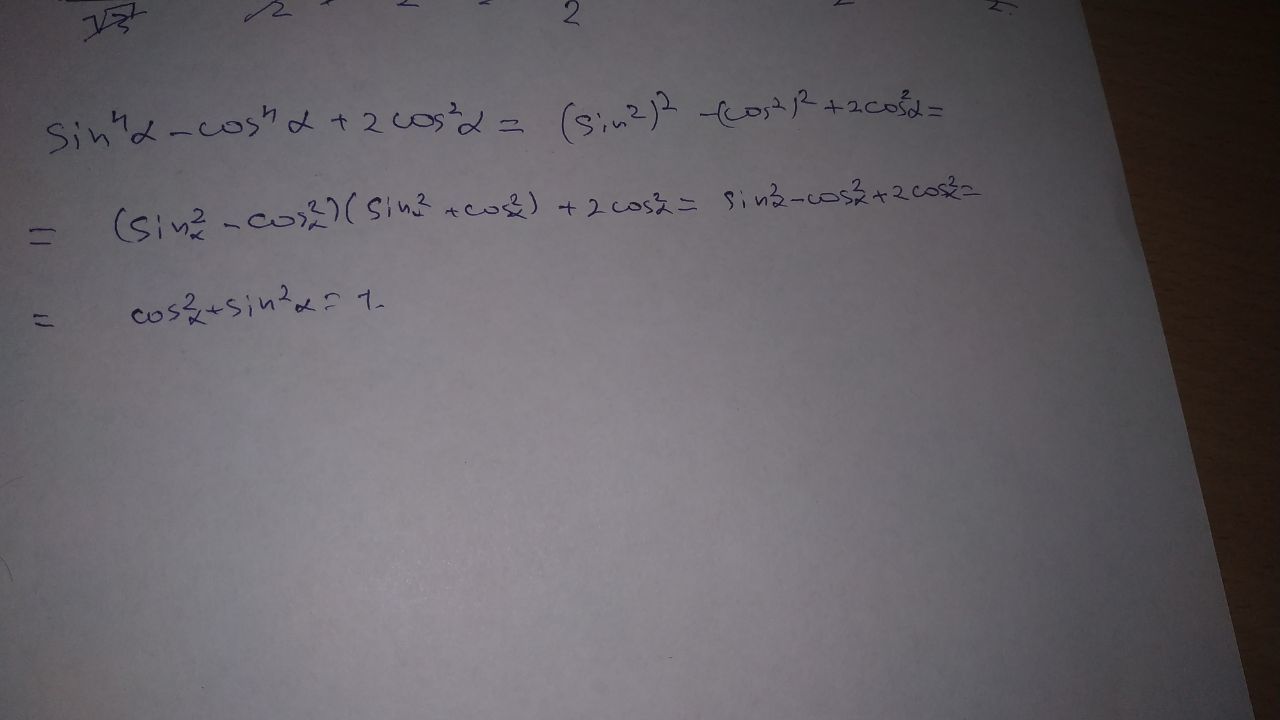 √3 √2 2 2 2 2.
sin⁴α - cos⁴α + 2cos²α = (sin²)² - (cos²)² + 2cos²α =
= (sin²α - cos²α)(sin²α + cos²α) + 2cos²α = sin²α - cos²α + 2cos²α =
= cos²α + sin²α = 1.